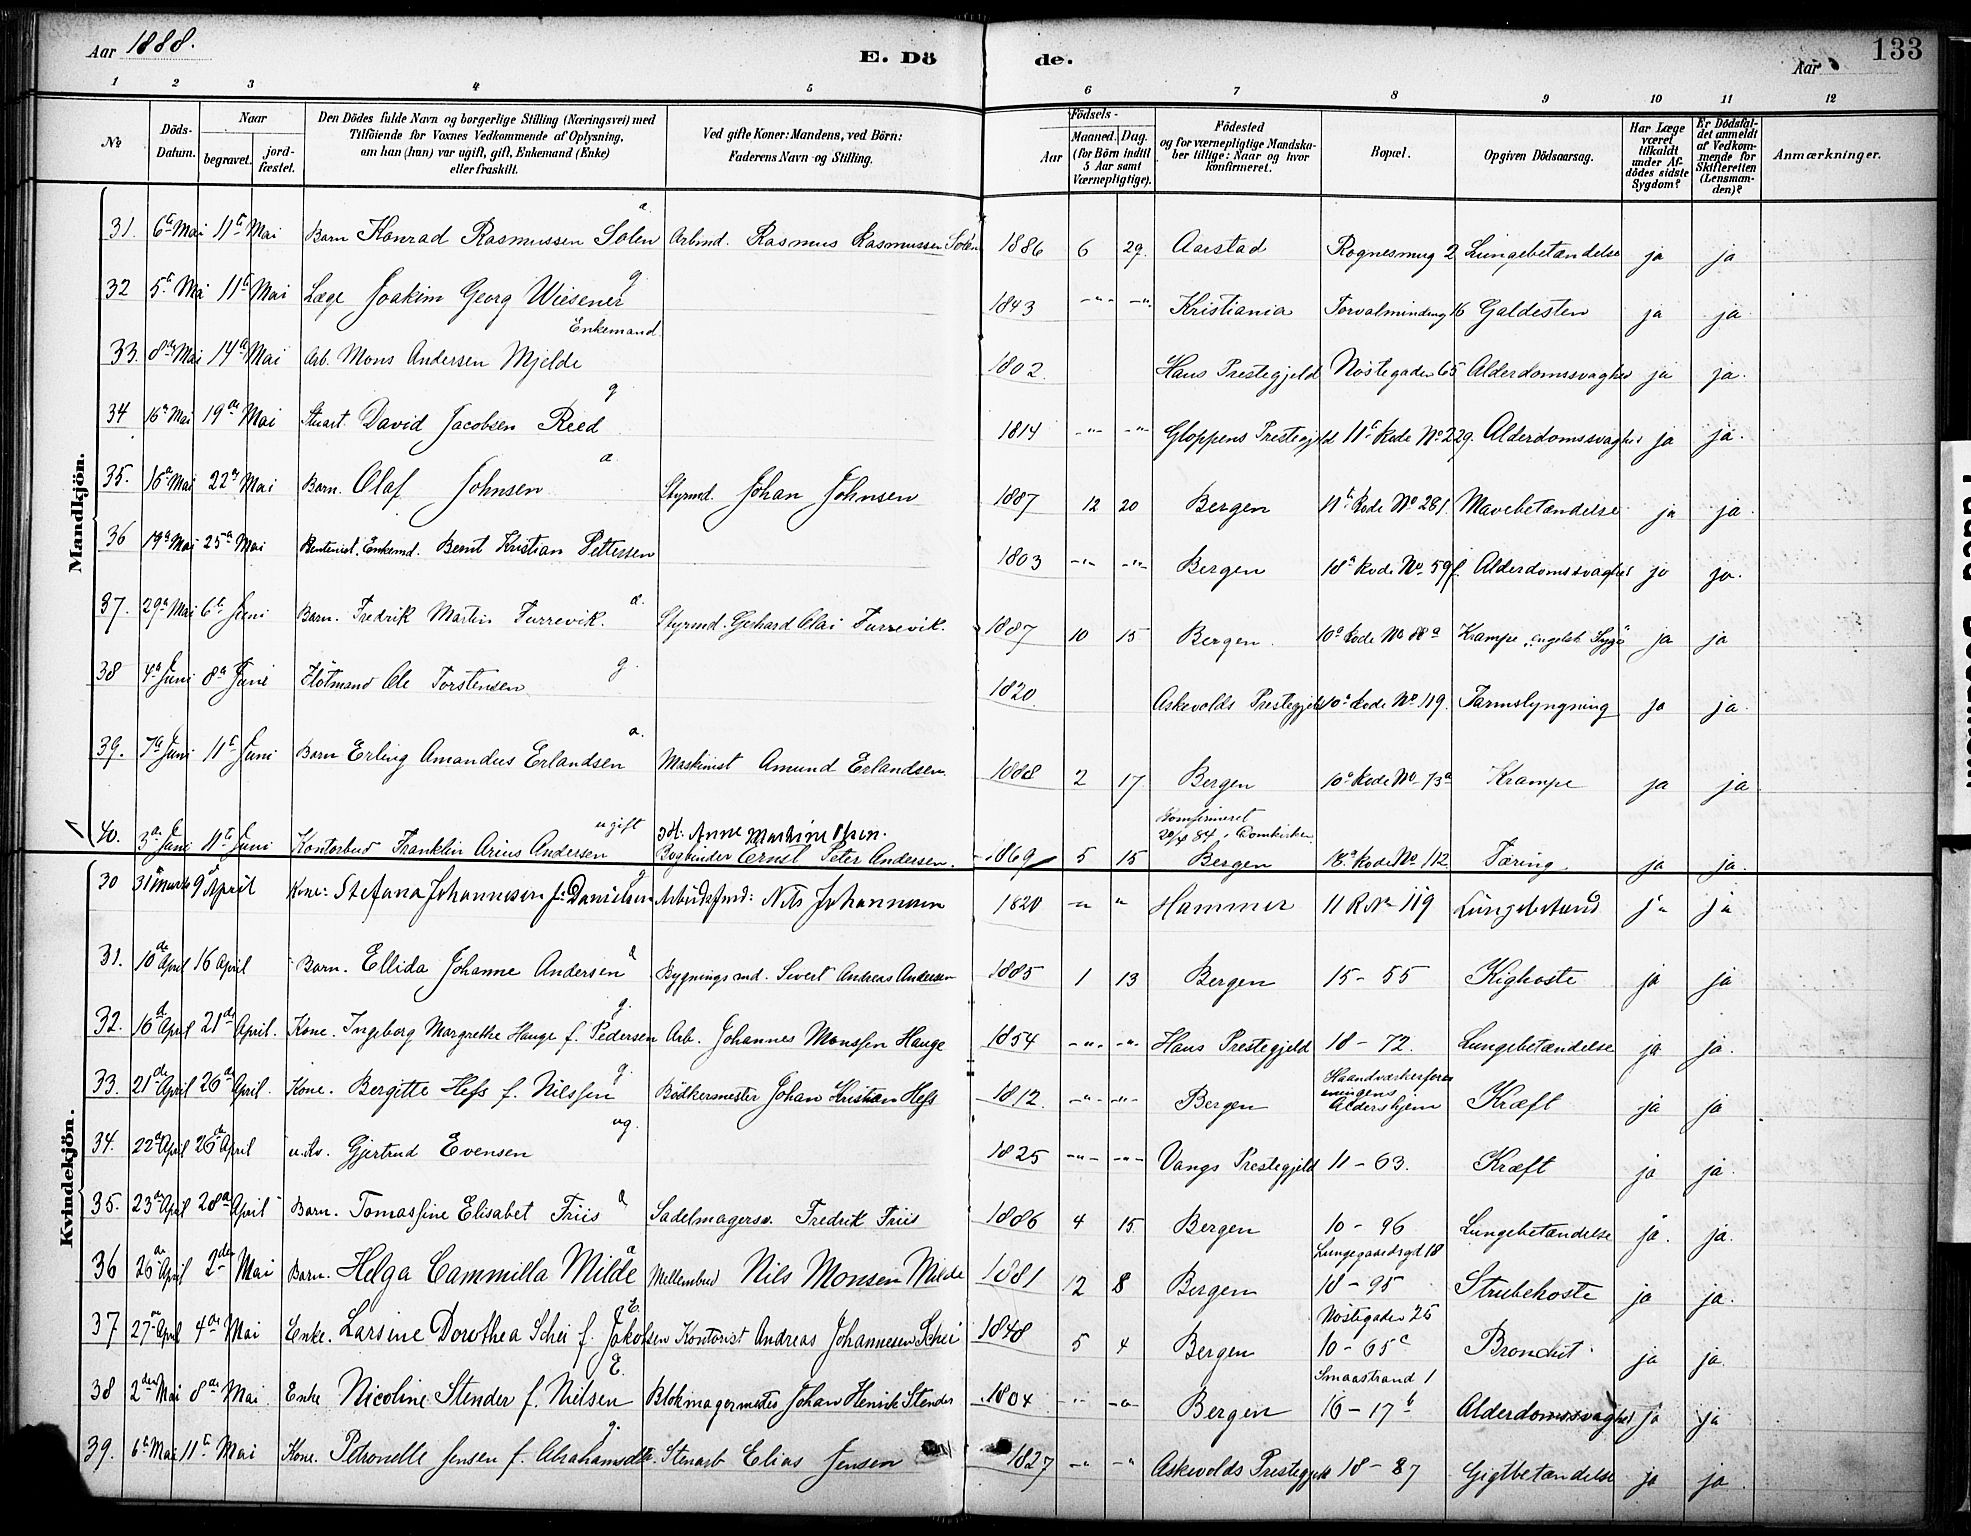 Aar 1888.
E. Dö
de.
Aar
133
1 2 3 4 5 6 7 8 9 10 11 12
No
Döds-Datum.
Naar
begravet.
jord-fæstet.
Den Dödes fulde Navn og borgerlige Stilling (Næringsvei) med
Tilföiende for Voxnes Vedkommende af Oplysning,
om han (hun) var ugift, gift, Enkemand (Enke)
eller fraskilt.
Ved gifte Koner: Mandens, ved Börn:
Faderens Navn og Stilling.
Födsels-
Aar
Maaned. Dag.
(for Börn indtil
5 Aar samt
Værnepligtige).
Födested
og for værnepligtige Mandska-
ber tillige: Naar og hvor
konfirmeret.
Bopæl.
Opgiven Dödsaarsag.
Har Læge
været
tilkaldt
under Af-
dödes sidste
Sygdom?
Er Dödsfal-
det anmeldt
af Vedkom-
mende for
Skifteretten
(Lensman-
den)?
Anmærkninger.
Mandkjön.
31. 6te Mai 11te Mai Barn Konrad Rasmussen Solen a. Arbmd. Rasmus Rasmussen Solen 1886 6 29. Aarstad Rognesmug 2 Lungebetændelse ja ja
32 5te Mai 11te Mai Læge Joakim Georg Wiesener g. 1843 -"- -"- Kristiania Torvalmindeng 16 Galdesten ja ja
33. 8de Mai 14de Mai Arb. Mons Andersen Mjelde Enkemand 1802. Haus Prestegjeld Nöstegaden 65 Alderdomssvaghed ja ja.
34 16de Mai 19de Mai Stuart. David Jacobsen Reed g 1814 -"- -"- Gloppens Prestegjeld 11te Rode No 229. Alderdomssvaghed ja ja.
35. 16de Mai 22de Mai Barn. Olaf Johnsen a Styrmd. Johan Johnsen 1887 12 20 Bergen 11te Rode No 281. Mavebetændelse ja ja
36 19de Mai 25de Mai Rentenist. Enkemd. Bernt Kristian Pettersen 1803 -"- -"- Bergen 18de Rode No 59f. Alderdomssvaghed ja ja.
37. 29de Mai 6te Juni Barn. Fredrik Martin Furrevik. a. Styrmd. Gerhard Olai Furrevik. 1887 10 15 Bergen. 10de Rode No 88a Krampe "engelsk Syge" ja ja
38 4de Juni 8de Juni Flötmand Ole Torstensen g. 1820. Askevolds Prestegjeld 10de Rode No 119. Tarmslyngning ja ja.
39. 7de Juni 11te Juni Barn Erling Amandus Erlandsen a. Maskinist Amund Erlandsen. 1888 2 17 Bergen 10de Rode No 73a Krampe ja ja
40. 3de Juni 11te Juni Kontorbud Franklin Arius Andersen ugift Anne
Bogbinder Ernst Peter Andersen. 1869 5 15 Konfirmeret
20/4 84 i Domkirken
Bergen 18de Rode No 112 Tæring. ja ja.
Kvindekjön.
30 31 Marts 9 April Kone: Stefana Johannesen f: Danielsen g Arbeidsfmd: Nils Johannesen 1820 -"- " Hammer 11 R No 119 Lungebetænd ja ja
31. 10de April 16 April Barn. Ellida Johanne Andersen a Bygningsmd. Sivert Andreas Andersen 1885 1 13 Bergen 15 - 55 Kighoste ja ja
32. 16de April 21de April. Kone. Ingeborg Margrethe Hauge f. Pedersen g. Arb. Johannes Monssen Hauge 1854 -"- -"- Haus Prestegjeld 18 - 72. Lungebetændelse ja ja.
33. 21de April 26de April. Kone. Bergitte Hess f. Nilssen g. Bödkermester Johan Kristian Hess 1812. -"- -"- Bergen Haandværkerforeningens
Aldershjem Kræft ja ja
34. 22de April 26de April u. Kv. Gjertrud Evensen ug. 1825 -"- -"- Vangs Prestegjeld 11 - 63. Kræft ja ja.
35. 23de April 28de April Barn. Tomassine Elisabet Friis a Sadelmagersv. Fredrik Friis 1886 4 15. Bergen 10 - 96 Lungebetændelse ja. ja.
36 26de April 2den Mai Barn. Helga Cammilla Milde a Mellembud Nils Monsen Milde 1881 12 8 Bergen Lungegaardsgd 18
18 - 95 Strubehoste ja ja.
37 27de April 4de Mai Enke. Larsine Dorothea Schei f. Jakobsen E. Kontorist Andreas Johannesen Schei 1848 5 4 Bergen Nöstegaden 25
10 - 65c Bronchit ja ja.
38 2den Mai 8de Mai. Enke Nicoline Stender f. Nielsen E. Blokmagermester Johan Henrik Stender 1804 -"- -"- Bergen Smaastrand 1
16 - 17b Alderdomssvaghed ja ja
39. 6te Mai 11te Mai Kone. Petronelle Jensen f. Abrahamsdtr. g. Stenarb Elias Jensen 1827 -"- -"- Askevolds Prestegjeld 18 - 87 Gigtbetændelse ja ja.